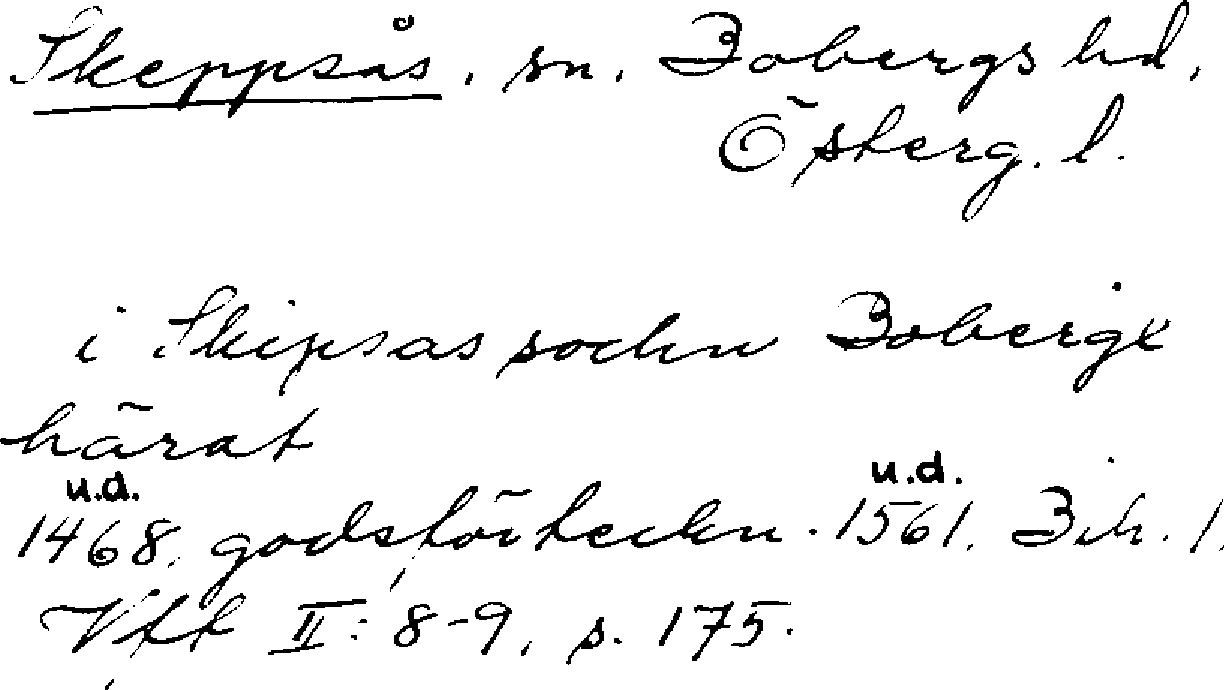 Skeppsås, sn, Bobergs hd,
Österg. l.
i Skipsas sochn Bobergx
härat
u.d. u.d.
1468, godsförteckn. 1561, Bih. 1,
Vtt II: 8-9, s. 175.